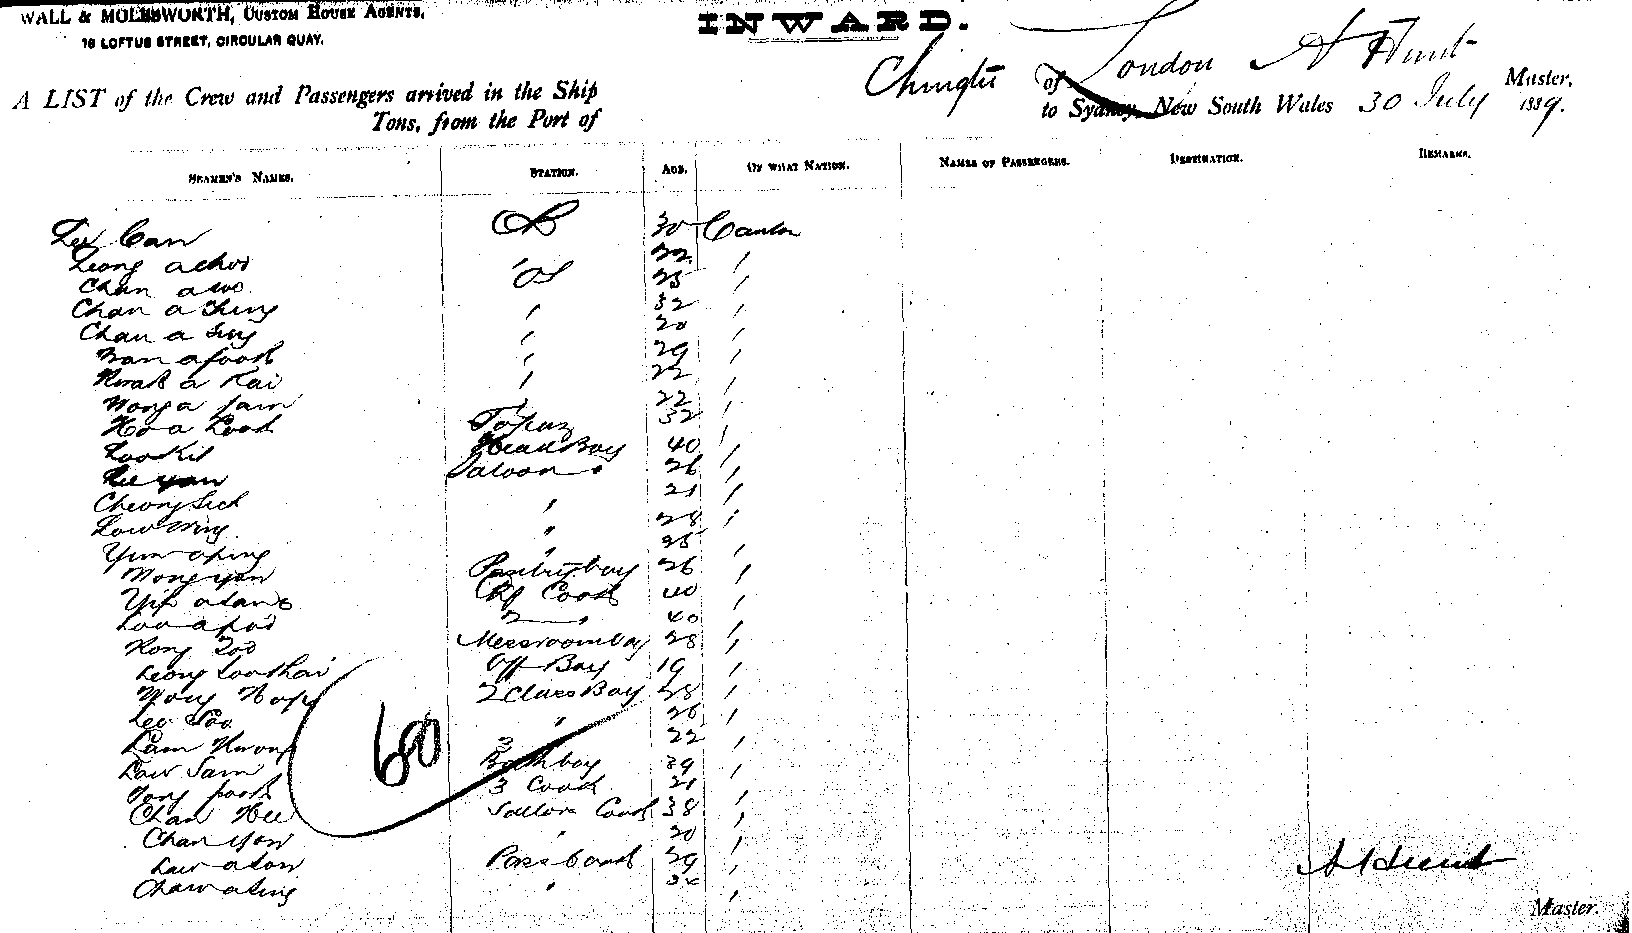 WALL & MOLESWORTH, CUSTOM HOUSE AGENTS,
16 LOFTUS STREET, CIRCULAR QUAY.
INWARD.
A LIST of the Crew and Passengers arrived in the Ship Chingtu of London A Hunt Master,
Tons, from the Port of to Sydney, New South Wales 30 July 1889.
SEAMEN'S NAMES. STATION. AGE. OF WHAT NATION. NAMES OF PASSENGERS. DESTINATION. REMARKS.
Lee Can 30 Canton
Leong achoi 22 "
Chan awo 25 "
Chan a Ching " 32 "
Chan a Sing " 20 "
afook " 29 "
Kwak a Kai " 22 "
Wong a Sam " 22 "
Ho a Look Topaz 32 "
Loo Kit Head Boy 40 "
Lee yan Saloon " 26 "
Cheong Sick " 21 "
Low Wing " 28 "
Yum aping " 25 "
Wong yan Pantryboy 26 "
Yip Cook 40 "
Loo a 2 " 40 "
Kong Messroomboy 28 "
Leong Off Boy 19 "
Wong Hop 2 Class Boy 28 "
Lee Soo " 26 "
Lam Kwong 3 22 "
Law Sam Bathboy 39 "
3 Cook 21 "
Chan Hee Sailors Cook 38 "
Chan Yow " 20 "
Law alow Pass Cook 29 "
Chaw a "
60
A Hunt
Master.